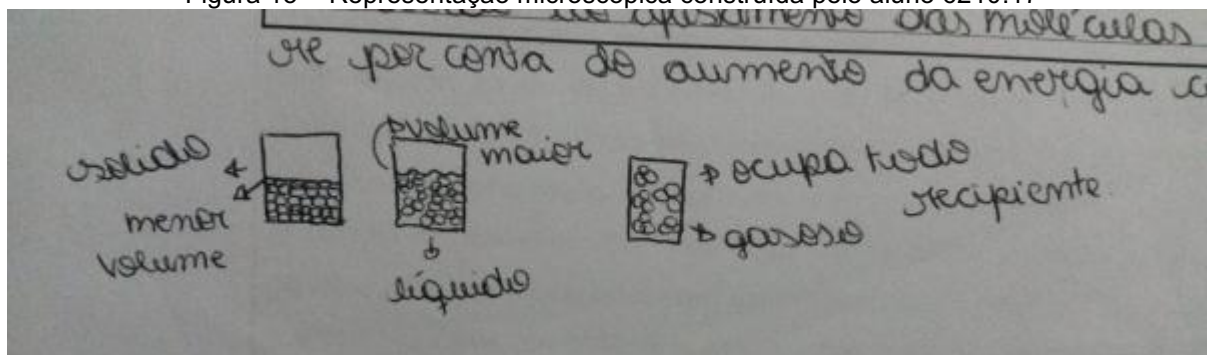 das moléculas
se por conta do aumento da energia
sólido
menor
volume
volume
maior
líquido
ocupa todo
recipiente
gasoso